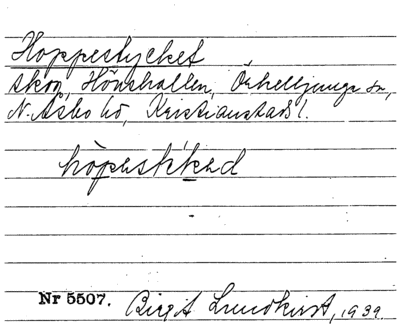 Hoppestycket
skog, Hönshallen, Örkelljunga sn,
N. Åsbo hd, Kristianstads l.
håpəstikəd
Nr 5507. Birgit Lundkvist, 1939.